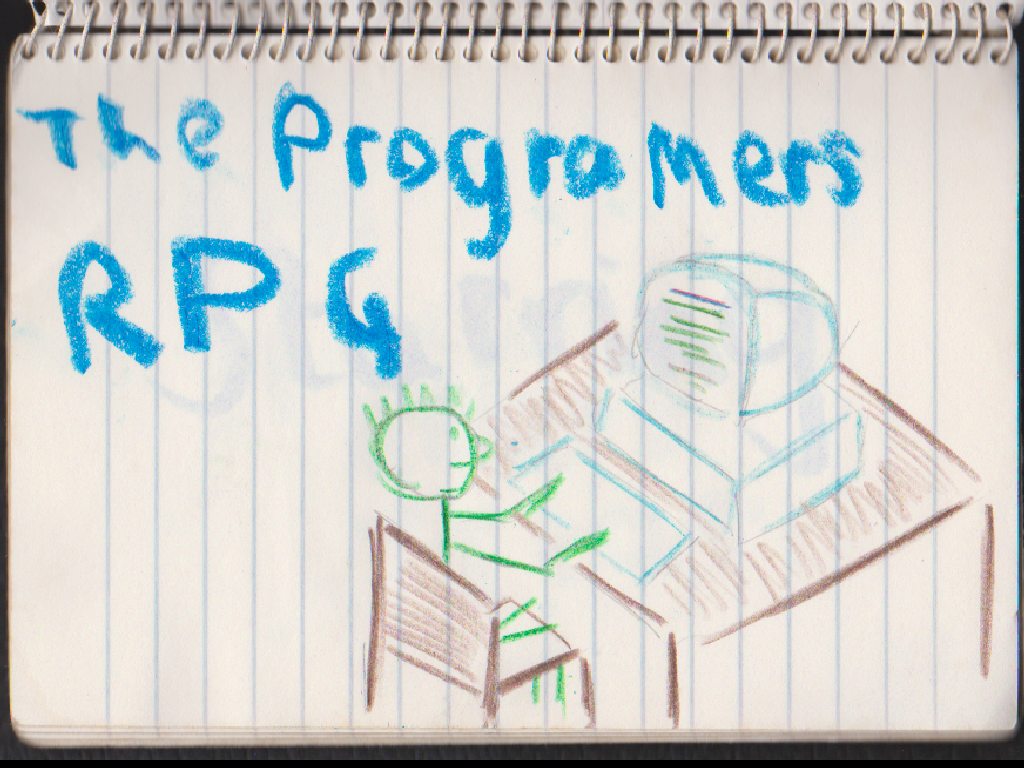 The Programers
RPG